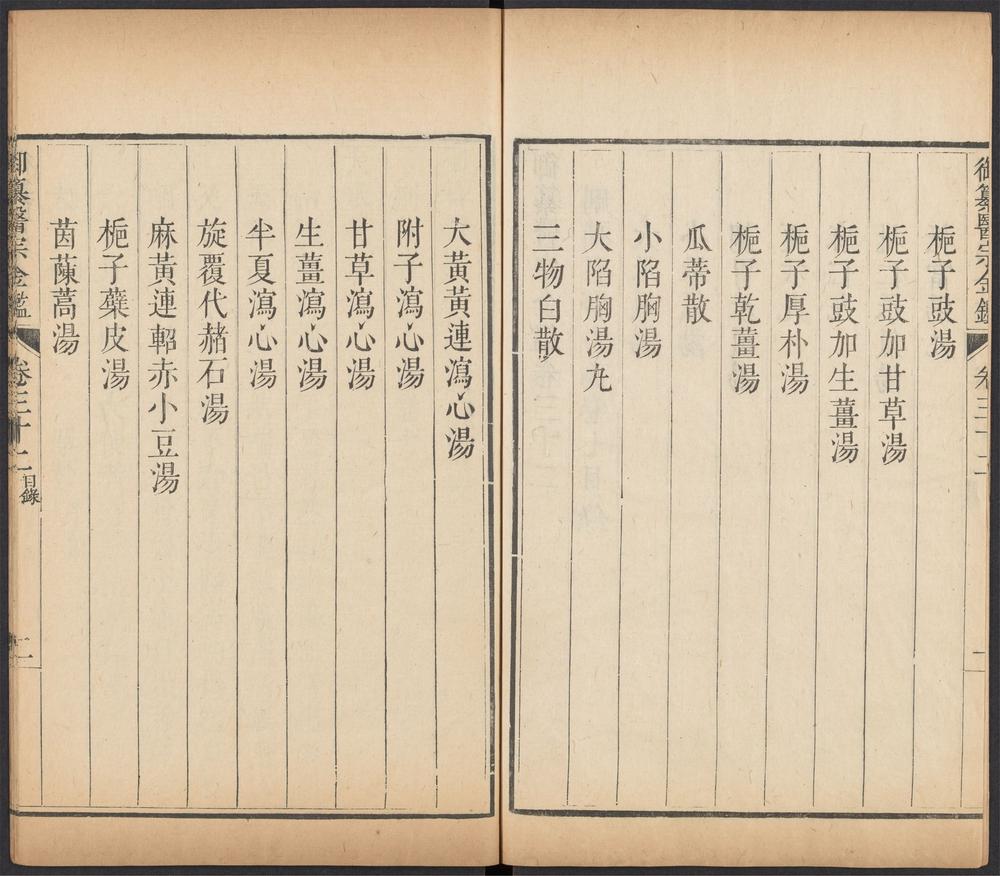 御纂醫宗金鑑
卷三十二
一
梔子豉湯
梔子豉加甘草湯
梔子豉加生薑湯
梔子厚朴湯
梔子乾薑湯
瓜蒂散
小陷胸湯
大陷胸湯丸
三物白散
大黃黃連瀉心湯
附子瀉心湯
甘草瀉心湯
生薑瀉心湯
半夏瀉心湯
旋覆代赭石湯
麻黃連軺赤小豆湯
梔子蘗皮湯
茵蔯蒿湯
御纂醫宗金鑑
卷三十二目錄
二